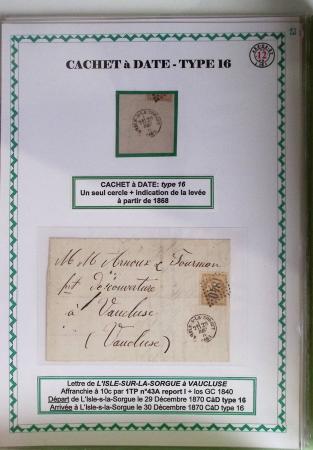 CACHET à DATE - TYPE 16
12
CACHET à DATE: type 16
Un seul cercle + indication de la levée
à partir de 1868
M. M Arnoux & Tourmon
à
Vaucluse
(Vaucluse)
Lettre de L'ISLE-SUR-LA-SORGUE à VAUCLUSE
Affranchie à 10c par 1TP n°43A report I + los GC 1840
Départ de L'Isle-s-la-Sorgue le 29 Décembre 1870 CàD type 16
Arrivée à L'Isle-s-la-Sorgue le 30 Décembre 1870 CàD type 16